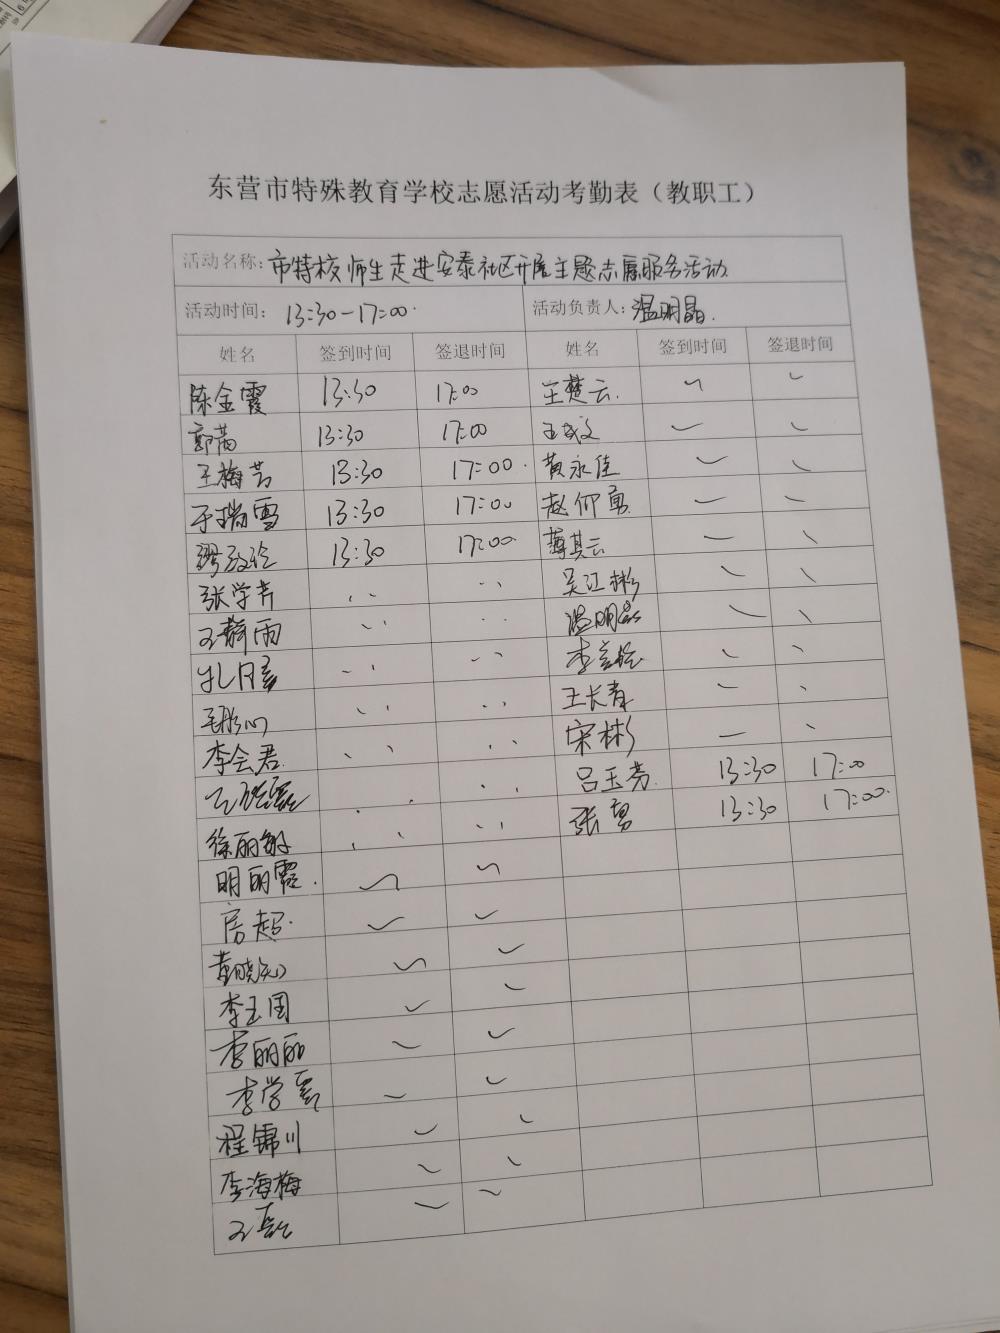 东营市特殊教育学校志愿活动考勤表（教职工）
活动名称：市特校师生走进安泰社区开展主题志愿服务活动
活动时间： 13:30-17:00 活动负责人：温明晶
姓名 签到时间 签退时间 姓名 签到时间 签退时间
陈金霞 13:30 17:00 王楚云
郭蕾 13:30 17:00
王梅芳 13:30 17:00 黄永佳
于瑞雪 13:30 17:00 赵仰勇
13:30 17:00 薄其云
张学芹 吴江彬
王静雨 温明晶
王长青
李会君 宋彬
吕玉芳 13:30 17:00
徐丽敏 张勇 13:30 17:00
明丽霞
房超
李玉国
李丽丽
李学霞
程锦川
李海梅